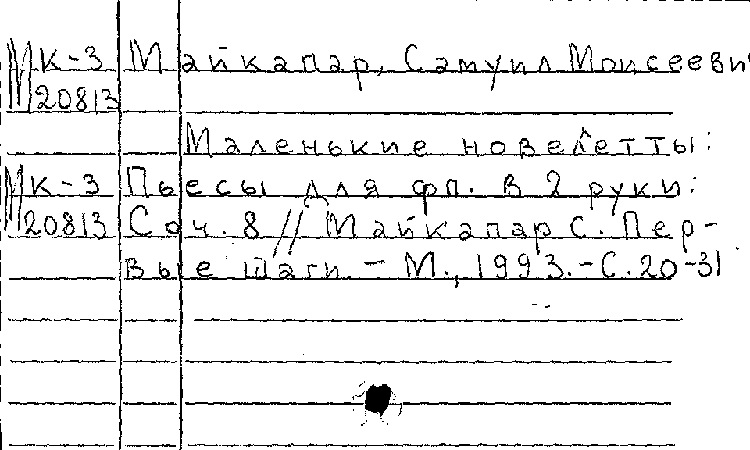 МК-3 Майкапар, Самуил Моисеевич
20813
Маленькие новелетты:
МК-3 Пьесы для фп. в 2 руки:
20813 Соч. 8 // Майкапар С. Пер-
вые шаги. - М., 1993. - С. 20-31